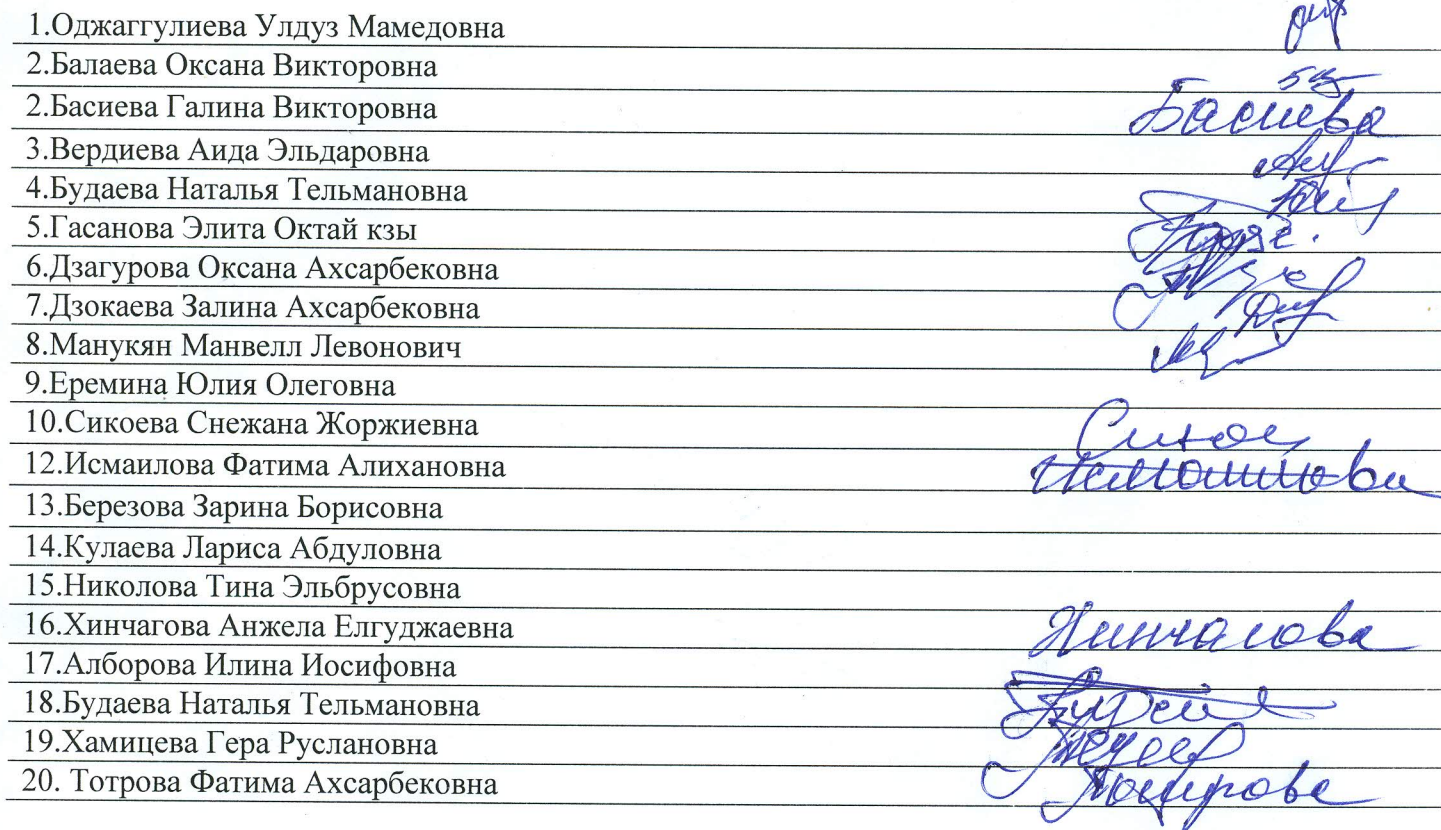 1.Оджаггулиева Улдуз Мамедовна
2.Балаева Оксана Викторовна
2.Басиева Галина Викторовна Басиева
3.Вердиева Аида Эльдаровна
4.Будаева Наталья Тельмановна
5.Гасанова Элита Октай кзы
6.Дзагурова Оксана Ахсарбековна
7.Дзокаева Залина Ахсарбековна
8.Манукян Манвелл Левонович
9.Еремина Юлия Олеговна
10.Сикоева Снежана Жоржиевна
12.Исмаилова Фатима Алихановна Исмаилова
13.Березова Зарина Борисовна
14.Кулаева Лариса Абдуловна
15.Николова Тина Эльбрусовна
16.Хинчагова Анжела Елгуджаевна Хинчагова
17.Алборова Илина Иосифовна
18.Будаева Наталья Тельмановна
19.Хамицева Гера Руслановна
20. Тотрова Фатима Ахсарбековна Тотрова